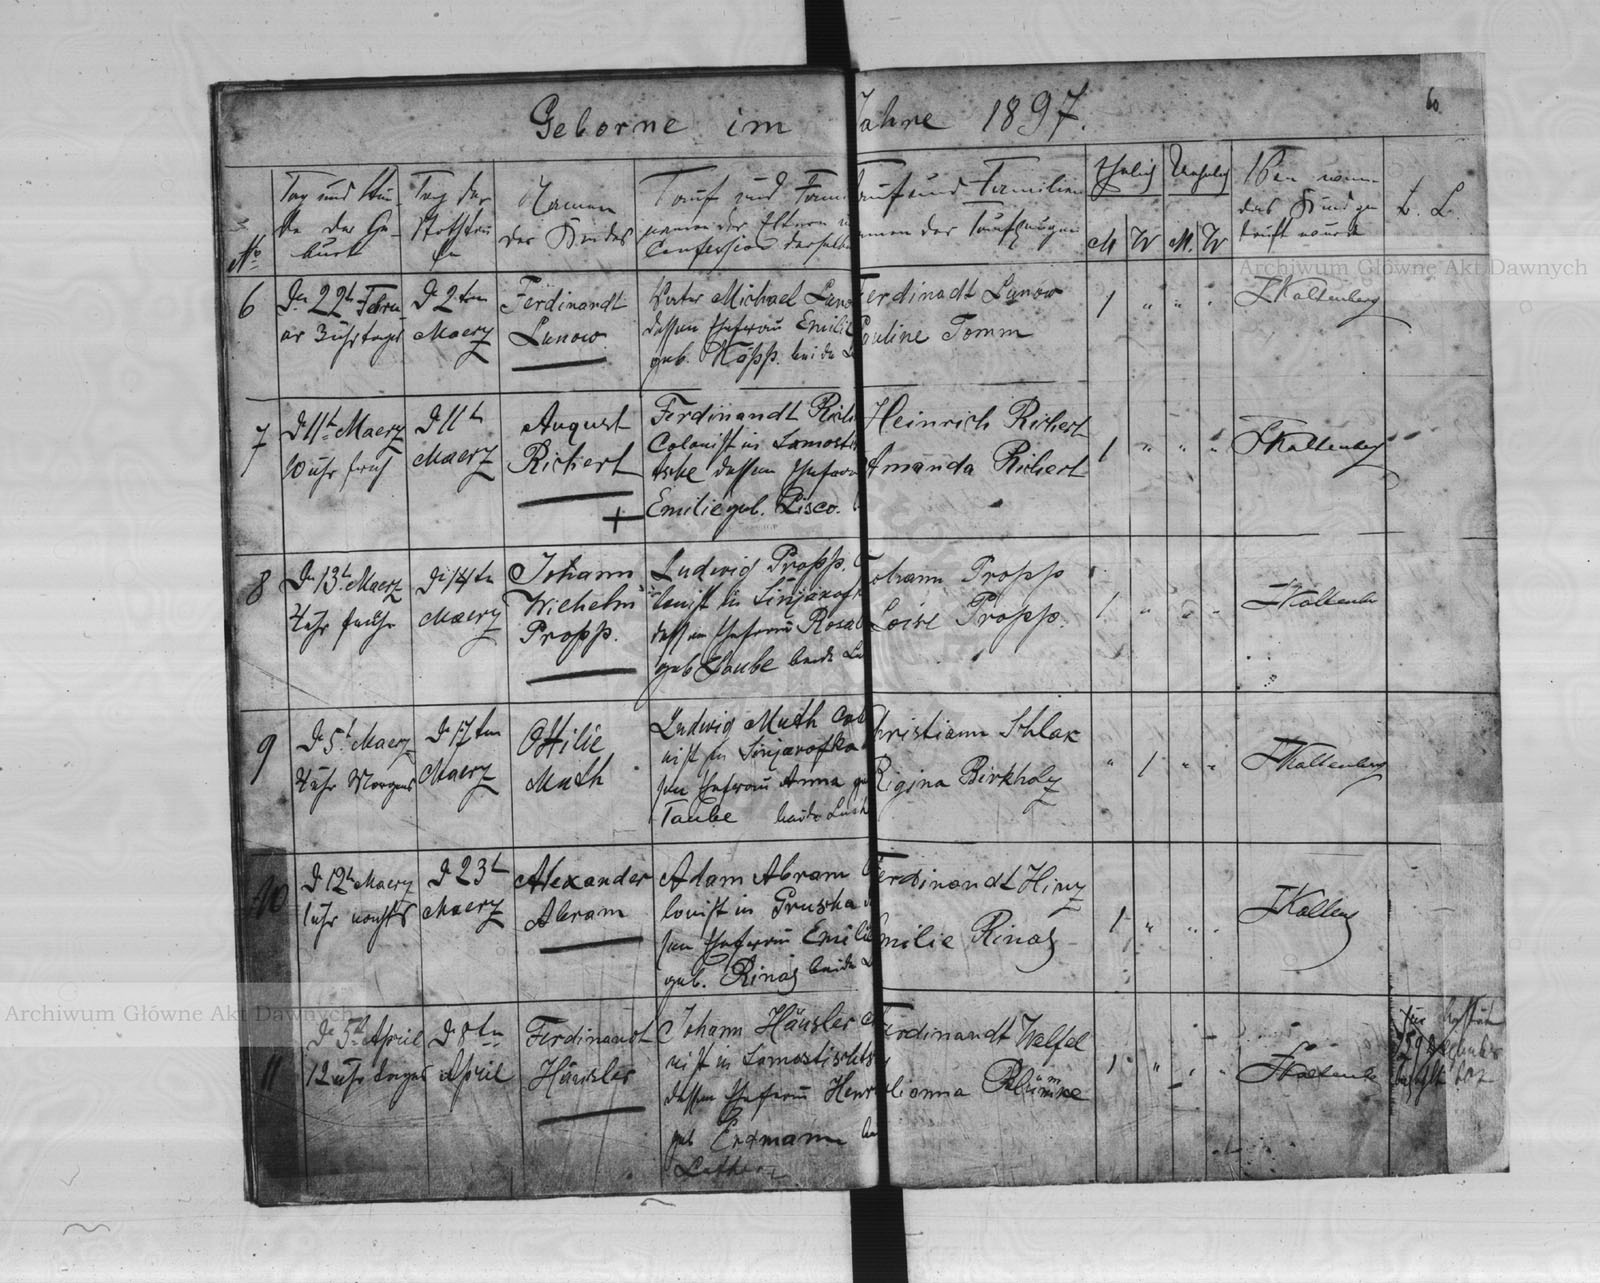 Geborne im Jahre 1897.
60
No
Tag und Stun-
de der Ge-
burt
Tag der
Namen
des Kindes
Tauf und Fami
namen der Eltern u
Confession derselbe
Tauf und Familien
namen der Taufzeugen
Ehelich
Unehelich
M W M. W
Von wem
das Kind ge
tauft wurde
6
D. 22t Febru-
ar 3 uhr tages
D 2ten
Maerz
Ferdinandt
Lunow
Vater Michael Luno
dessen Ehefrau Emili
geb. Köpp. beide L
Ferdinadt Lunow
Pauline Tomm
1 " " "
Kaltenberg
7
D 11t Maerz
10 uhr früh
D 11t
Maerz
August
Richert
Ferdinandt Rich
Colonist in Lomosti
dessen Ehefrau
Emilie geb. Lisco.
Heinrich Richert
Amanda Richert
1 " " "
Kaltenberg
8
Dn 13t Maerz
4 uhr frühe
D 14tn
Maerz
Johann
Wilhelm
Propp.
Ludwig Propp.
lonist in Sinjarofk
dessen Ehefrau Rosal
geb Taube beide Lu
Johann Propp
Loise Propp.
1 " " "
Kaltenb
9
D 5t Maerz
4 uhr Morgens
D 17ten
Maerz
Ottilie
Muth
Ludwig Muth Col
nist in Sinjarofka
sen Ehefrau Anna g
Taube beide Luth
Christiann Schlak
Rigina Birkholz
" 1 " "
Kaltenberg
10
D 12t Maerz
1 uhr nachts
D 23t
Maerz
Alexander
Abram
Adam Abram
lonist in Gruska
sen Ehefrau Emili
geb. Rinas beide L
Ferdinandt Hinz
Emilie Rinas
1 " " "
Kalten
11
D. 5t April
12 uhr tages
D 8tn
April
Ferdinandt
Häusler
Johann Häusler
nist in Lomostischts
dessen Ehefrau Henr
geb Erdmann
Luther
Ferdinandt Walfel
Blümke
1 " " "
Kaltenb
Archiwum Główne Akt Dawnych
Archiwum Główne Akt Dawnych